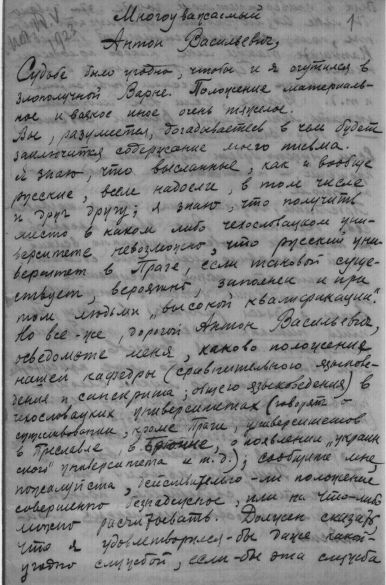 Многоуважаемый
1
Антон Васильевич,
Судьбе было угодно, чтобы и я очутился в
злополучной Варне. Положение материаль-
ное и всякое иное очень тяжелое.
Вы, разумеется, догадываетесь в чем будет
заключится содержание моего письма.
Я знаю, что высланные, как и вообще
русские, всем надоели, в том числе
и друг другу; я знаю, что получить
место в каком либо чехословацком уни-
верситете невозможно, что русский уни-
верситет в Праге, если таковой суще-
ствует, вероятно, заполнен и при
том людьми "высокой квалификации".
Но все-же, дорогой Антон Васильевич,
осведомьте меня, каково положение
нашей кафедры (сравнительного языкове-
дения и санскрита; общего языковедения) в
чехословацких университетах (говорят о
существовании, кроме Праги, университетов
в Пресла­вле, в Брюнне, о появлении "украин
ского" университета и т.д.); сообщите мне,
пожалуйста, действительно-ли положение
совершенно безнадежное, или на что-либо
можно расчитывать. Должен сказать,
что я удовлетворился-бы даже какой
угодно службой, если-бы эта служба